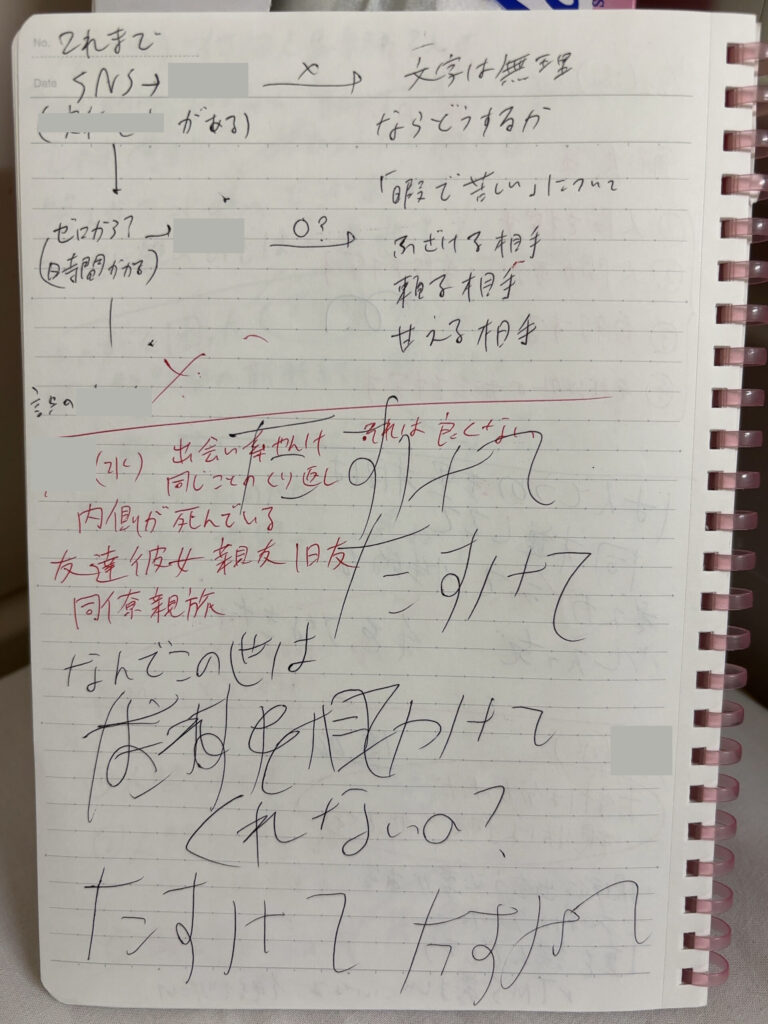 No. これまで
Date SNS→ ×→ 文字は無理
がある) ならどうするか
「暇で苦しい」について
ゼロから?→ ○?→ ふざける相手
(時間かかる) 頼る相手
甘える相手
×
たすけて
(水) 出会い 同じことのくり返し それは良くない
内側が死んでいる
たすけて
友達彼女親友旧友
同僚親族
なんでこの世は
くれないの?
たすけて